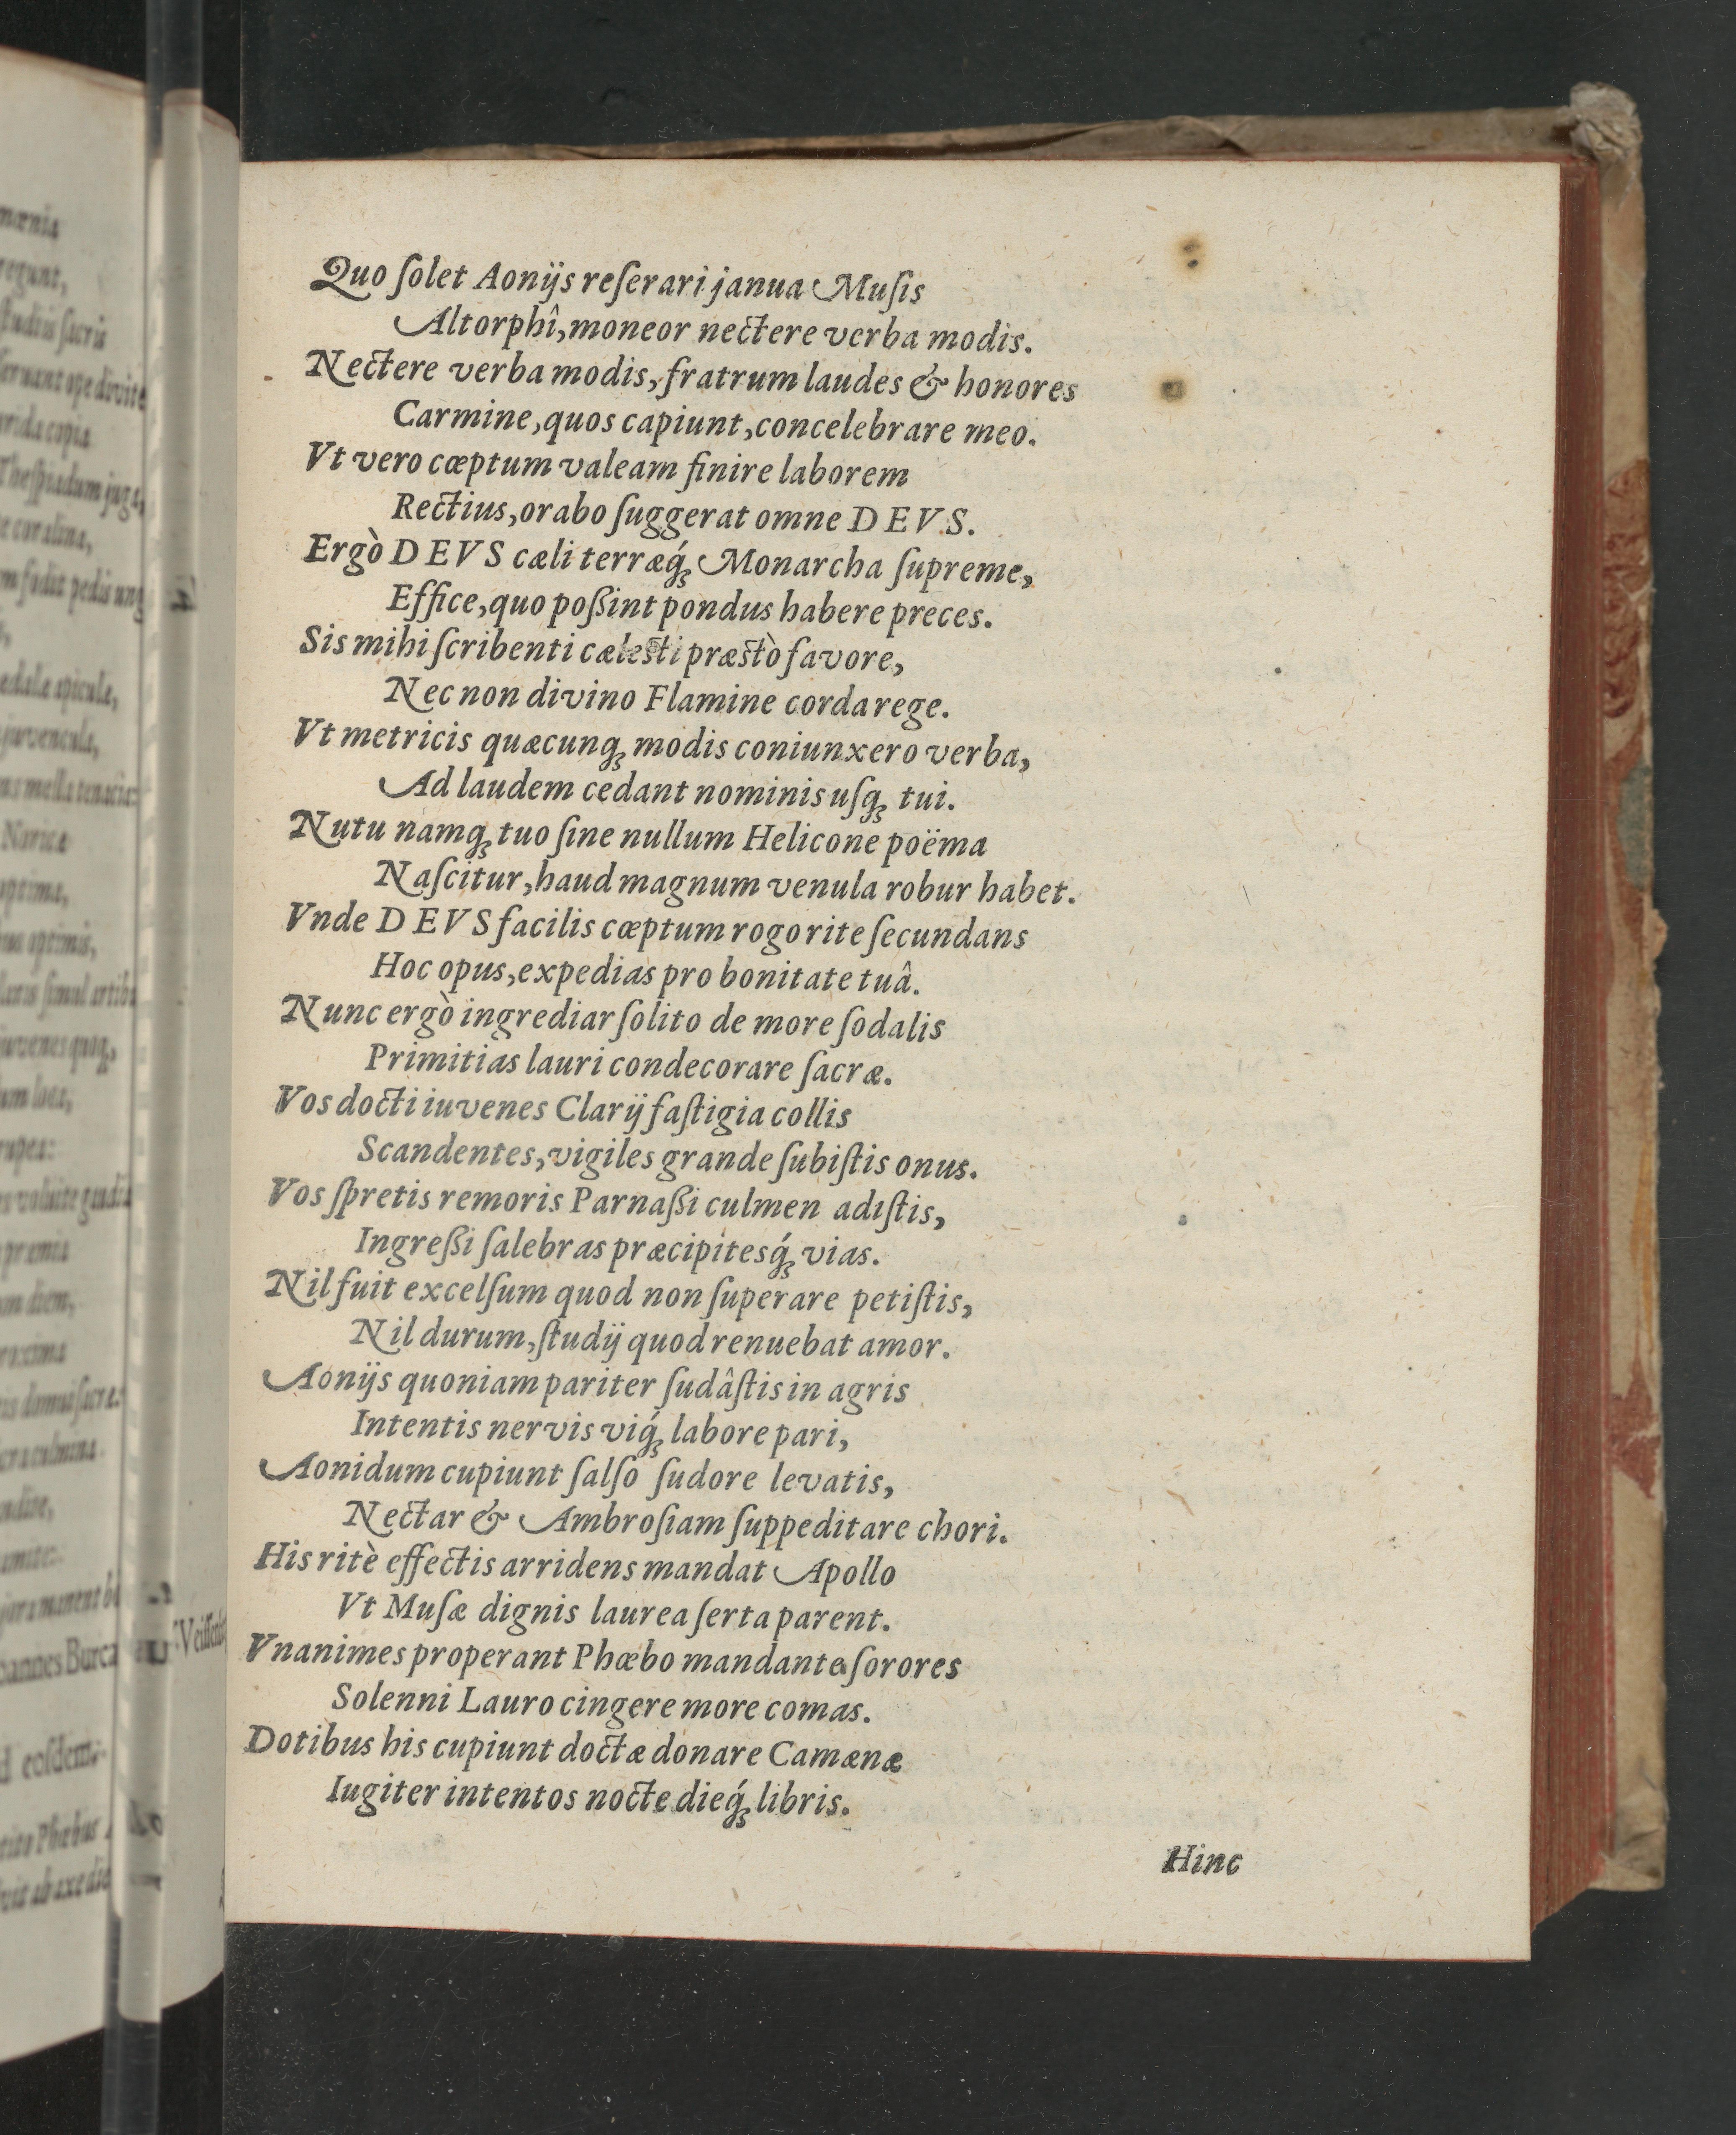 Quo ſolet Aonijs reſerari janua Muſis
Altorphî, moneor nectere verba modis.
Nectere verba modis, fratrum laudes & honores
Carmine, quos capiunt, concelebrare meo.
Vt vero cœptum valeam finire laborem
Rectius, orabo ſuggerat omne DEVS.
Ergò DEVS cæli terræq́ꝫ Monarcha ſupreme,
Effice, quo poßint pondus habere preces.
Sis mihi ſcribenti cæleſti præſtò favore,
Nec non divino Flamine corda rege.
Vt metricis quæcunqꝫ modis coniunxero verba,
Ad laudem cedant nominis uſqꝫ tui.
Nutu namqꝫ tuo ſine nullum Helicone poëma
Naſcitur, haud magnum venula robur habet.
Vnde DEVS facilis cœptum rogo rite ſecundans
Hoc opus, expedias pro bonitate tuâ.
Nunc ergò ingrediar ſolito de more ſodalis
Primitias lauri condecorare ſacræ.
Vos docti iuvenes Clarij faſtigia collis
Scandentes, vigiles grande ſubiſtis onus.
Vos ſpretis remoris Parnaßi culmen adiſtis,
Ingreßi ſalebras præcipitesq́ꝫ vias.
Nil fuit excelſum quod non ſuperare petiſtis,
Nil durum, ſtudij quod renuebat amor.
Aonijs quoniam pariter ſudâſtis in agris
Intentis nervis viq́ꝫ labore pari,
Aonidum cupiunt ſalſo ſudore levatis,
Nectar & Ambroſiam ſuppeditare chori.
His ritè effectis arridens mandat Apollo
Vt Muſæ dignis laurea ſerta parent.
Vnanimes properant Phœbo mandante ſorores
Solenni Lauro cingere more comas.
Dotibus his cupiunt doctæ donare Camænæ
Iugiter intentos nocte dieq́ꝫ libris.
Hinc